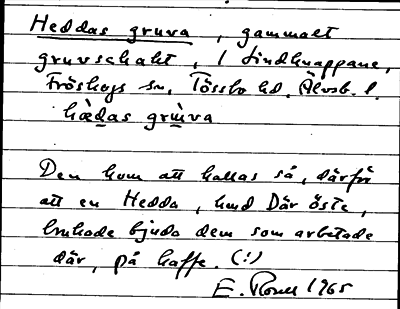 Heddas gruva, gammalt
gruvschakt, i Lindknappane,
Fröskogs sn. Tössbo hd. Älvsb. l.
hèdas grùva
Den kom att kallas så, därför
att en Hedda, hmd Där öste,
brukade bjuda dem som arbetade
där, på kaffe. (!)
E. 1965